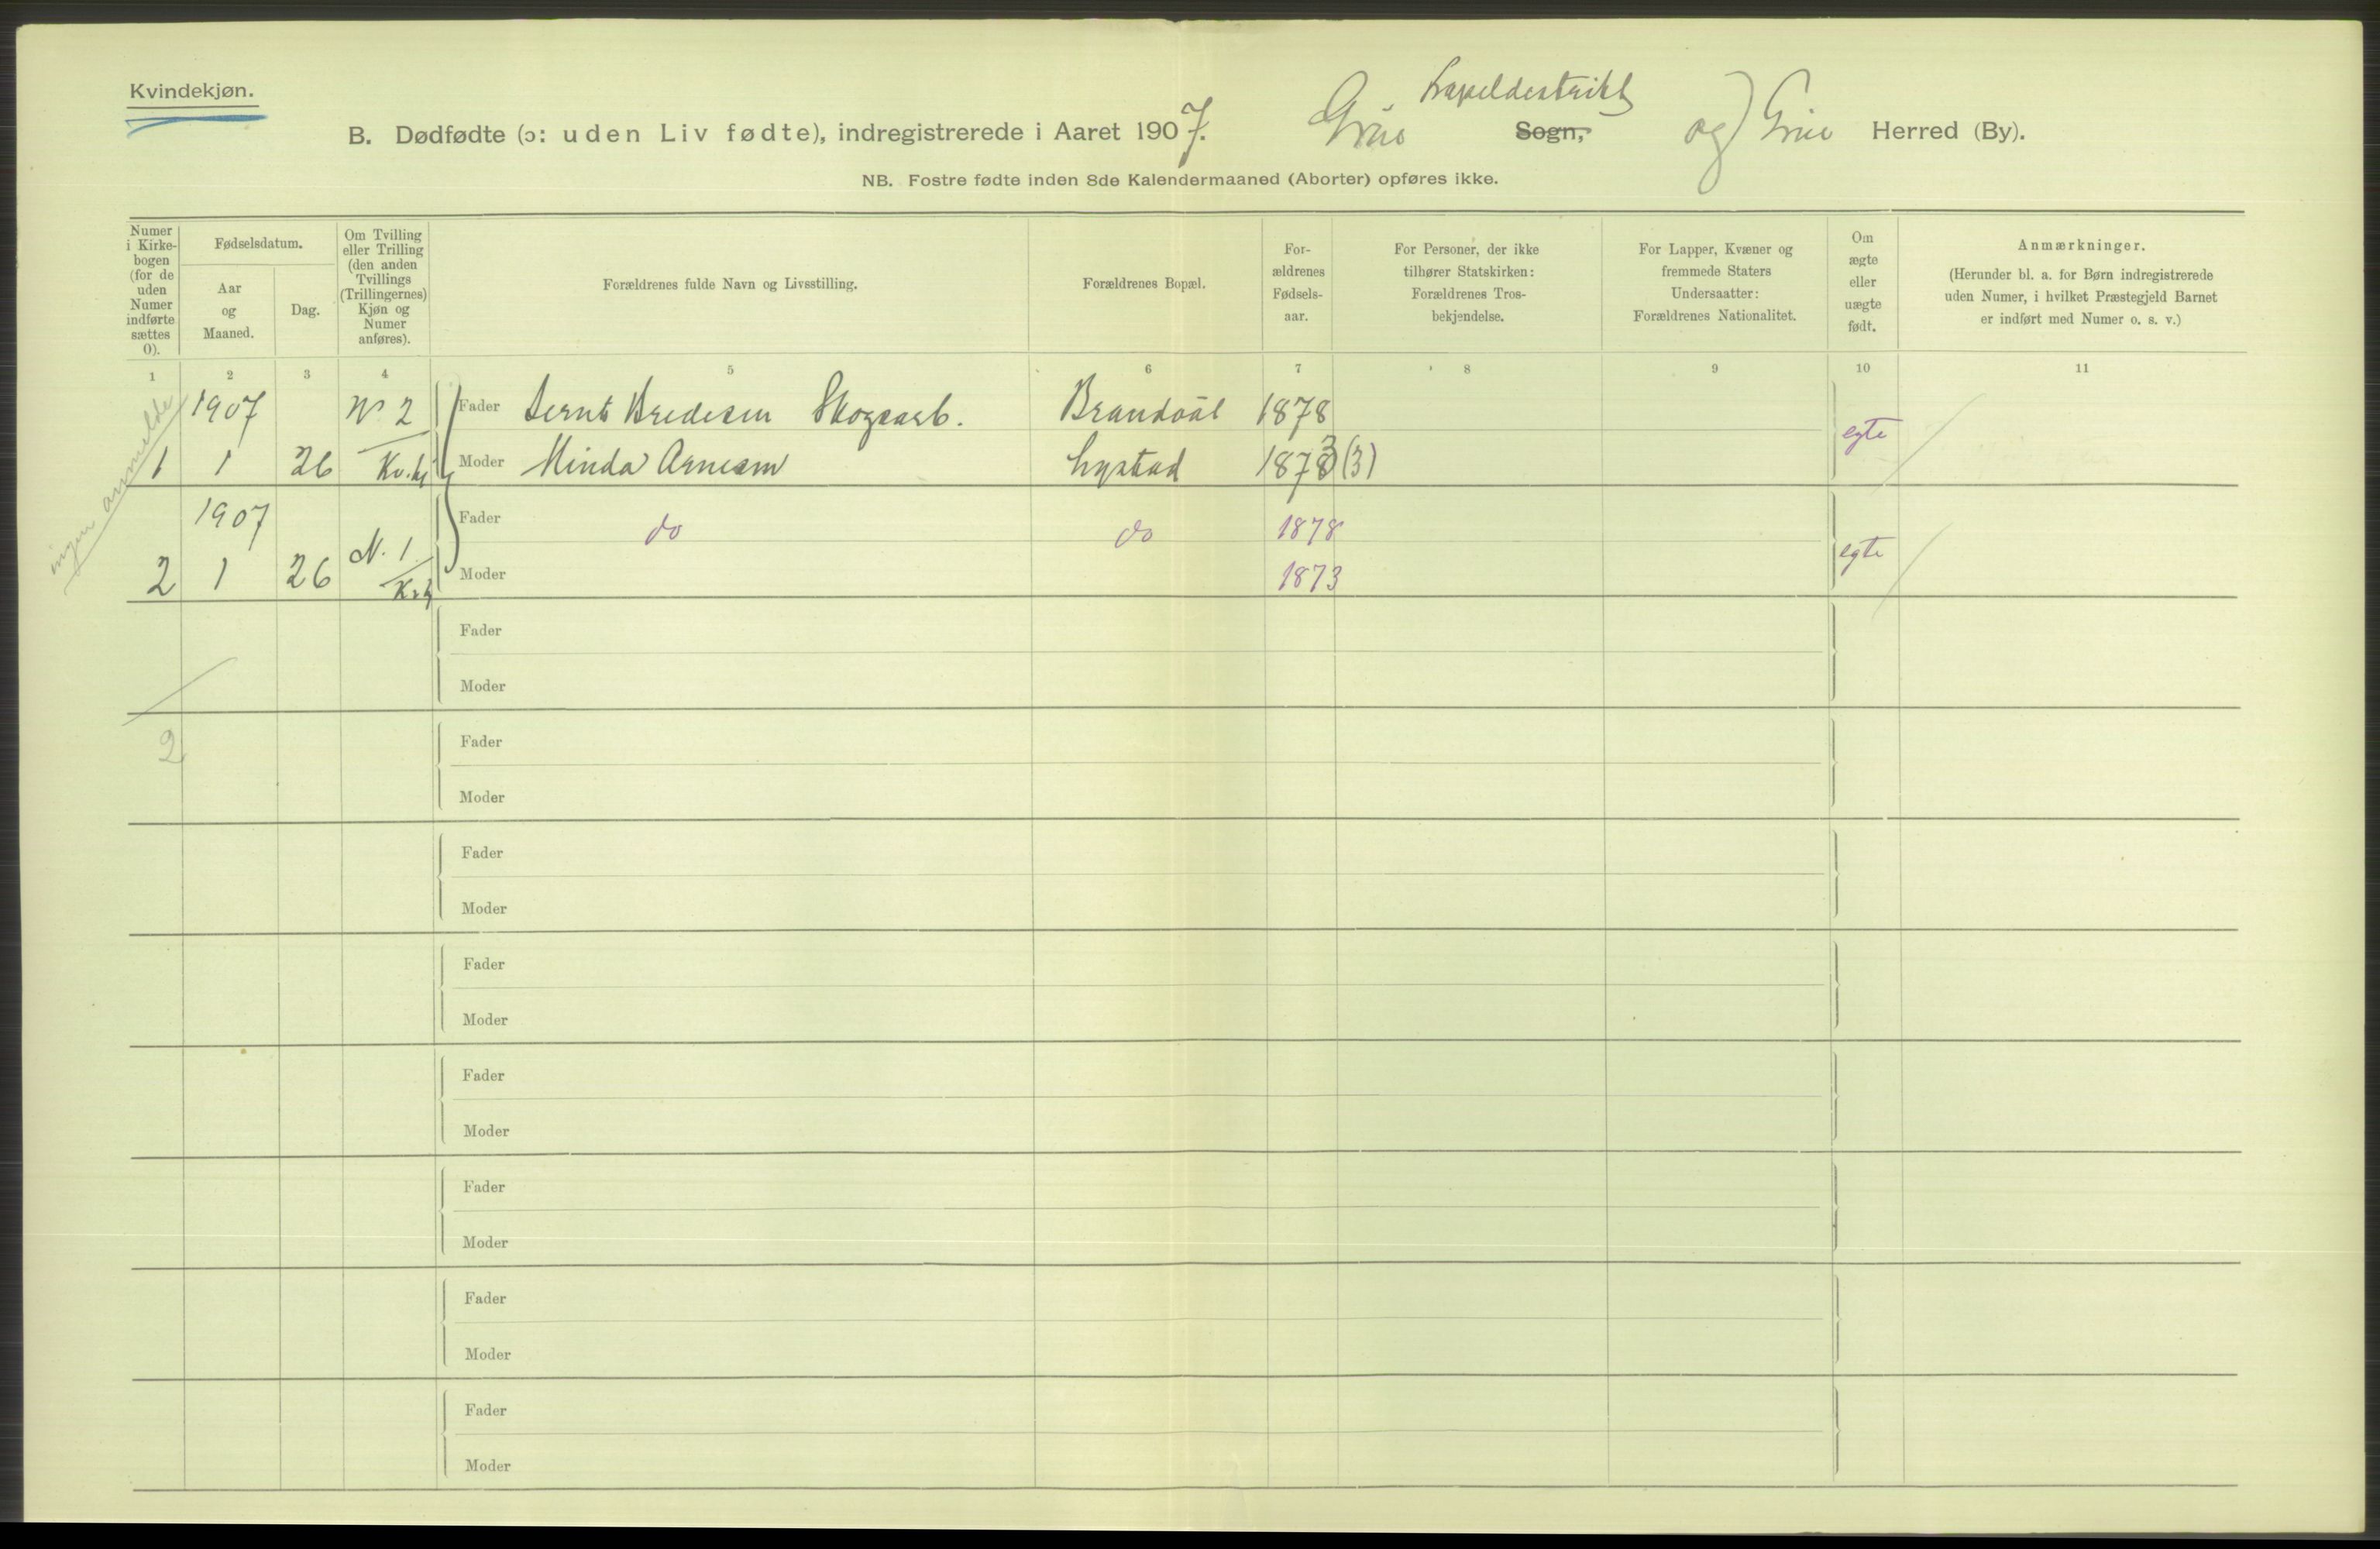 Kvindekjøn.
B. Dødfødte (ɔ: uden Liv fødte), indregistrerede i Aaret 1907. Grue Kapeldestrikt Sogn, og Grue Herred (By).
NB. Fostre fødte inden 8de Kalendermaaned (Aborter) opføres ikke.
Numer i Kirke-bogen (for de uden Numer indførte sættes 0).
Fødselsdatum.
Aar og Maaned.
Dag.
Om Tvilling eller Trilling (den anden Tvillings (Trillingernes) Kjøn og Numer anføres).
Forældrenes fulde Navn og Livsstilling.
Forældrenes Bopæl.
For-ældrenes Fødsels-aar.
For Personer, der ikke tilhører Statskirken: Forældrenes Tros-bekjendelse.
For Lapper, Kvæner og fremmede Staters Undersaatter: Forældrenes Nationalitet.
Om ægte eller uægte født.
Anmærkninger.
(Herunder bl. a. for Børn indregistrerede uden Numer, i hvilket Præstegjeld Barnet er indført med Numer o. s. v.)
1 2 3 4 5 6 7 8 9 10 11
ingen anmeldt
1907 No 2 Fader Bernt Bredesen Skogsarb. Brandvål 1878 egte
1 1 26 Kv.kj Moder Minda Arnesen Lystad 1873 (3)
1907 N. 1 Fader do do 1878 egte
2 1 26 Kvkj Moder 1873
Fader
Moder
2
Fader
Moder
Fader
Moder
Fader
Moder
Fader
Moder
Fader
Moder
Fader
Moder
Fader
Moder